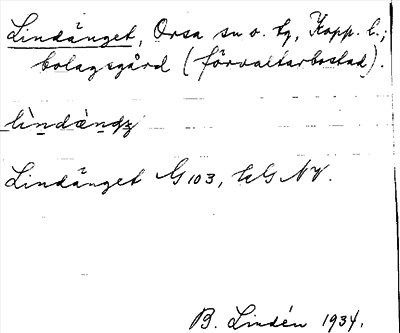 Lindänget, Orsa sn o. tg, Kopp. l.;
bolagsgård (förvaltarbostad).
lìndæ̀ndʒ
Lindänget G 103, GG NV.
B. Lindén 1934.